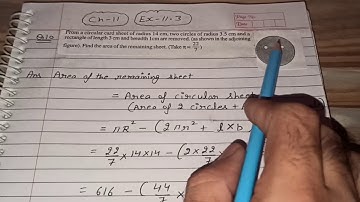 Ch-11 Ex-11.3
Page No.
Date
Q10 From a circular card sheet of radius 14 cm, two circles of radius 3.5 cm and a
rectangle of length 3 cm and breadth 1cm are removed. (as shown in the adjoining
figure). Find the area of the remaining sheet. (Take π = 22/7)
Ans Area of the remaining sheet
= Area of circular sheet
(Area of 2 circles +
= πR² - (2πr² + l×b
= 22/7 ×14×14 - (2×22/7
= 616 - (44/7